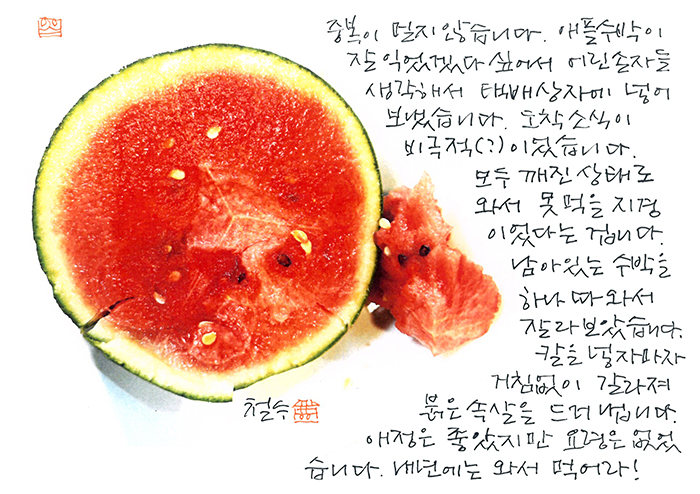 중복이 멀지않습니다. 애플수박이
잘익었겠다 싶어서 어린손자들
생각해서 택배상자에 넣어
보냈습니다. 도착소식이
비극적(?)이었습니다.
모두 깨진상태로
와서 못먹을 지경
이었다는 겁니다.
남아있는 수박을
하나 따와서
잘라보았습니다.
칼을 넣자마자
거침없이 갈라져
붉은속살을 드러냅니다.
애정은 좋았지만 요령은 없었
습니다. 내년에는 와서 먹어라!
철수